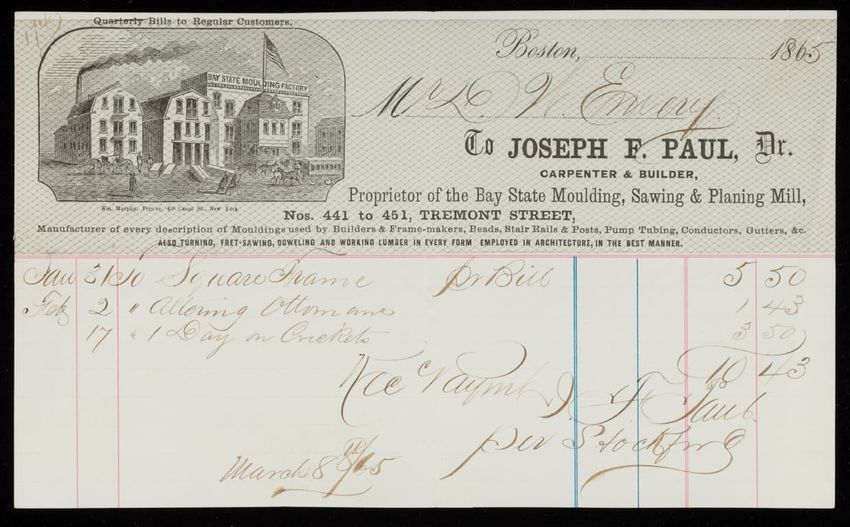 Quarterly Bills to Regular Customers.
BAY STATE MOULDING FACTORY
Wm. Murphy, Printer, 438 Canal St., New York
Boston, 1865
Mr D. N. Emery.
To JOSEPH F. PAUL, Dr.
CARPENTER & BUILDER,
Proprietor of the Bay State Moulding, Sawing & Planing Mill,
Nos. 441 to 451, TREMONT STREET,
Manufacturer of every description of Mouldings used by Builders & Frame-makers, Beads, Stair Rails & Posts, Pump Tubing, Conductors, Gutters, &c.
ALSO TURNING, FRET-SAWING, DOWELING AND WORKING LUMBER IN EVERY FORM EMPLOYED IN ARCHITECTURE, IN THE BEST MANNER.
Jan 31 To Square Frame pr Bill 5 50
Feb 2 " Altering Ottomans 1 43
17 " 1 Day on Crickets 3 50
10 43
Rec'd Paymt J. F. Paul
per
March 8th/65